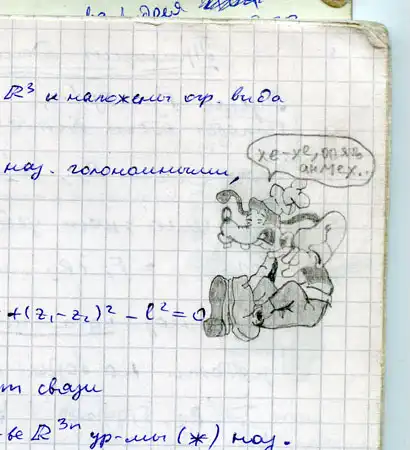 для
ℝ³ и наложены огр. вида
наз. голономными,
хе-хе, опять
анмех..
+(z₁-z₂)² - l² = 0
связи
-ве ℝ³ⁿ ур-мы (*) наз.